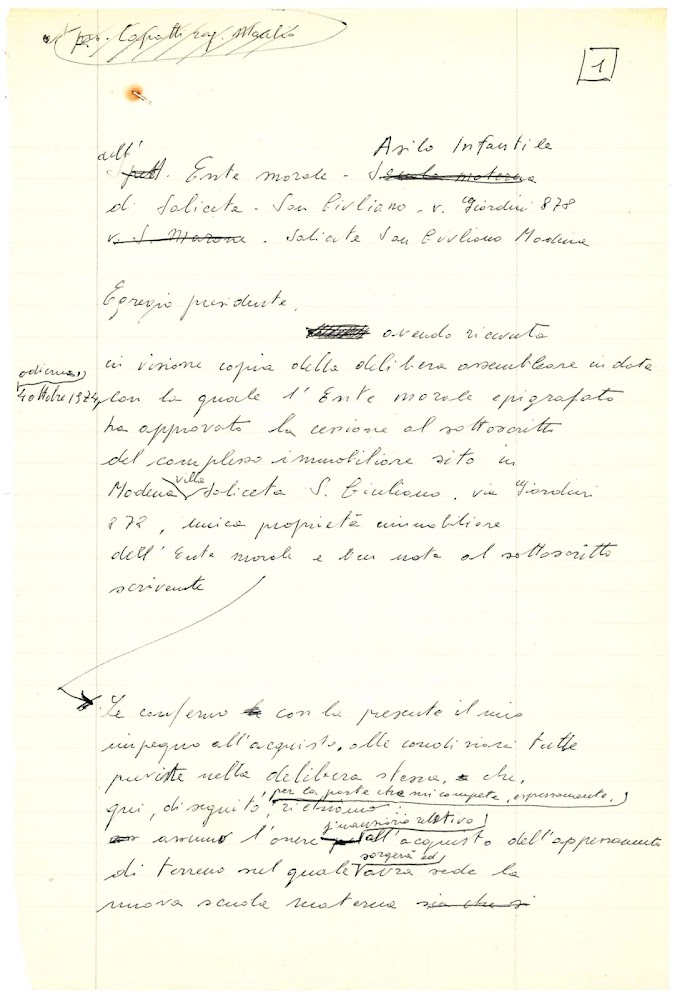 1
dell'
Asilo Infantile
Spett. Ente morale - Scuola materna
di Saliceta - San Giuliano. v. Giardini 878
v. S. Marone. Saliceta San Giuliano Modena
Egregio presidente,
avendo ricevuta
in visione copia della delibera assembleare in data
odierna,
4 ottobre 1974, con la quale l'Ente morale epigrafato
ha approvato la cessione al sottoscritto
del complesso immobiliare sito in
villa
Modena Saliceta S. Giuliano, via Giardini
878, unica proprietà immobiliare
dell'Ente morale e ben nota al sottoscritto
scrivente
Le confermo con la presente il mio
impegno all'acquisto, alle condizioni tutte
previste nella delibera stessa, che,
per la parte che mi compete, espressamente,
qui, di seguito, richiamo:
finanziario relativo
assumo l'onere all'acquisto dell'appezzamento
sorgerà ed
di terreno sul quale avrà sede la
nuova scuola materna sia che si